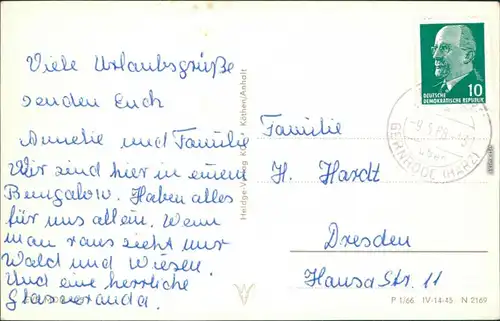 Viele Urlaubsgrüße
senden Euch
Annelie und Familie
Wir sind hier in einem
Bungalow. Haben alles
für uns allein. Wenn
man raus sieht nur
Wald und Wiesen.
Und eine herrliche
Glasveranda.
Heldge-Verlag Köthen/Anhalt
10
DEUTSCHE
DEMOKRATISCHE REPUBLIK
GERNRODE (HARZ)
Familie
H. Hardt
Dresden
Hansa Str. 11
P 1/66 IV-14-45 N 2169